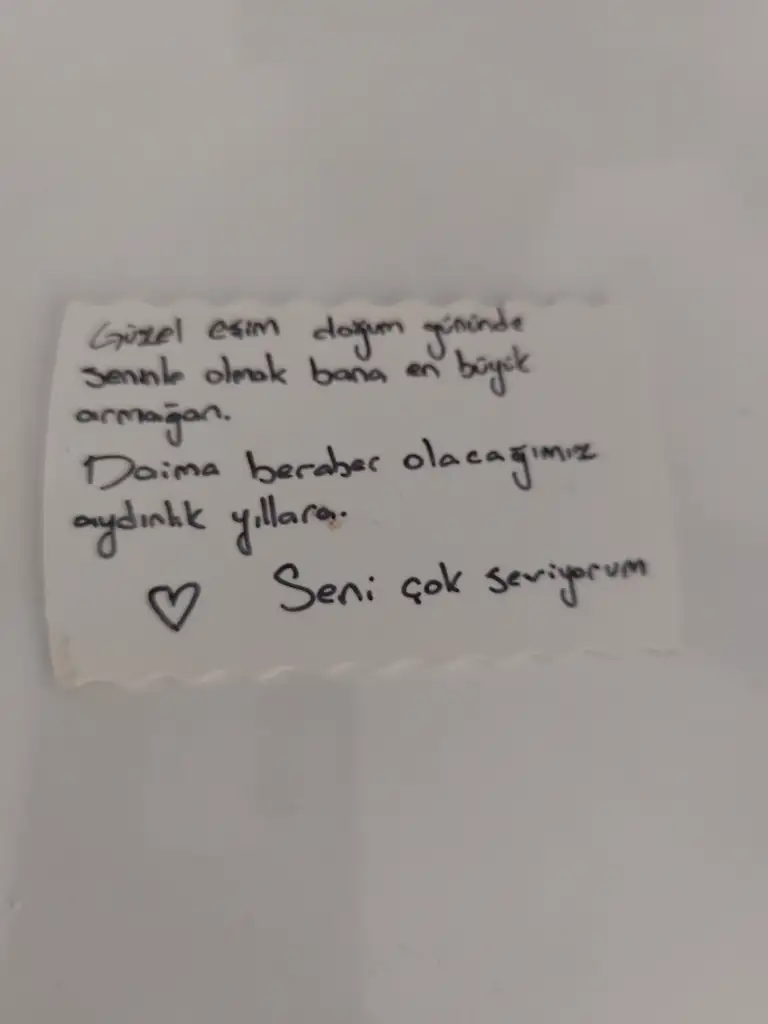 Güzel eşim doğum gününde
seninle olmak bana en büyük
armağan.
Daima beraber olacağımız
aydınlık yıllara.
♡ Seni çok seviyorum